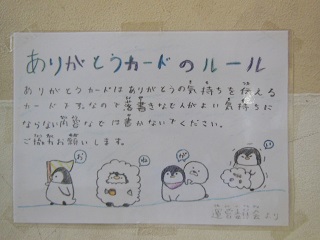 ありがとうカードのルール
ありがとうカードはありがとうの気持ちを伝える
カードです。なので落書きなど人がよい気持ちに
ならない内容などは書かないでください。
ご協力お願いします。
お ね が い
運営委員会より